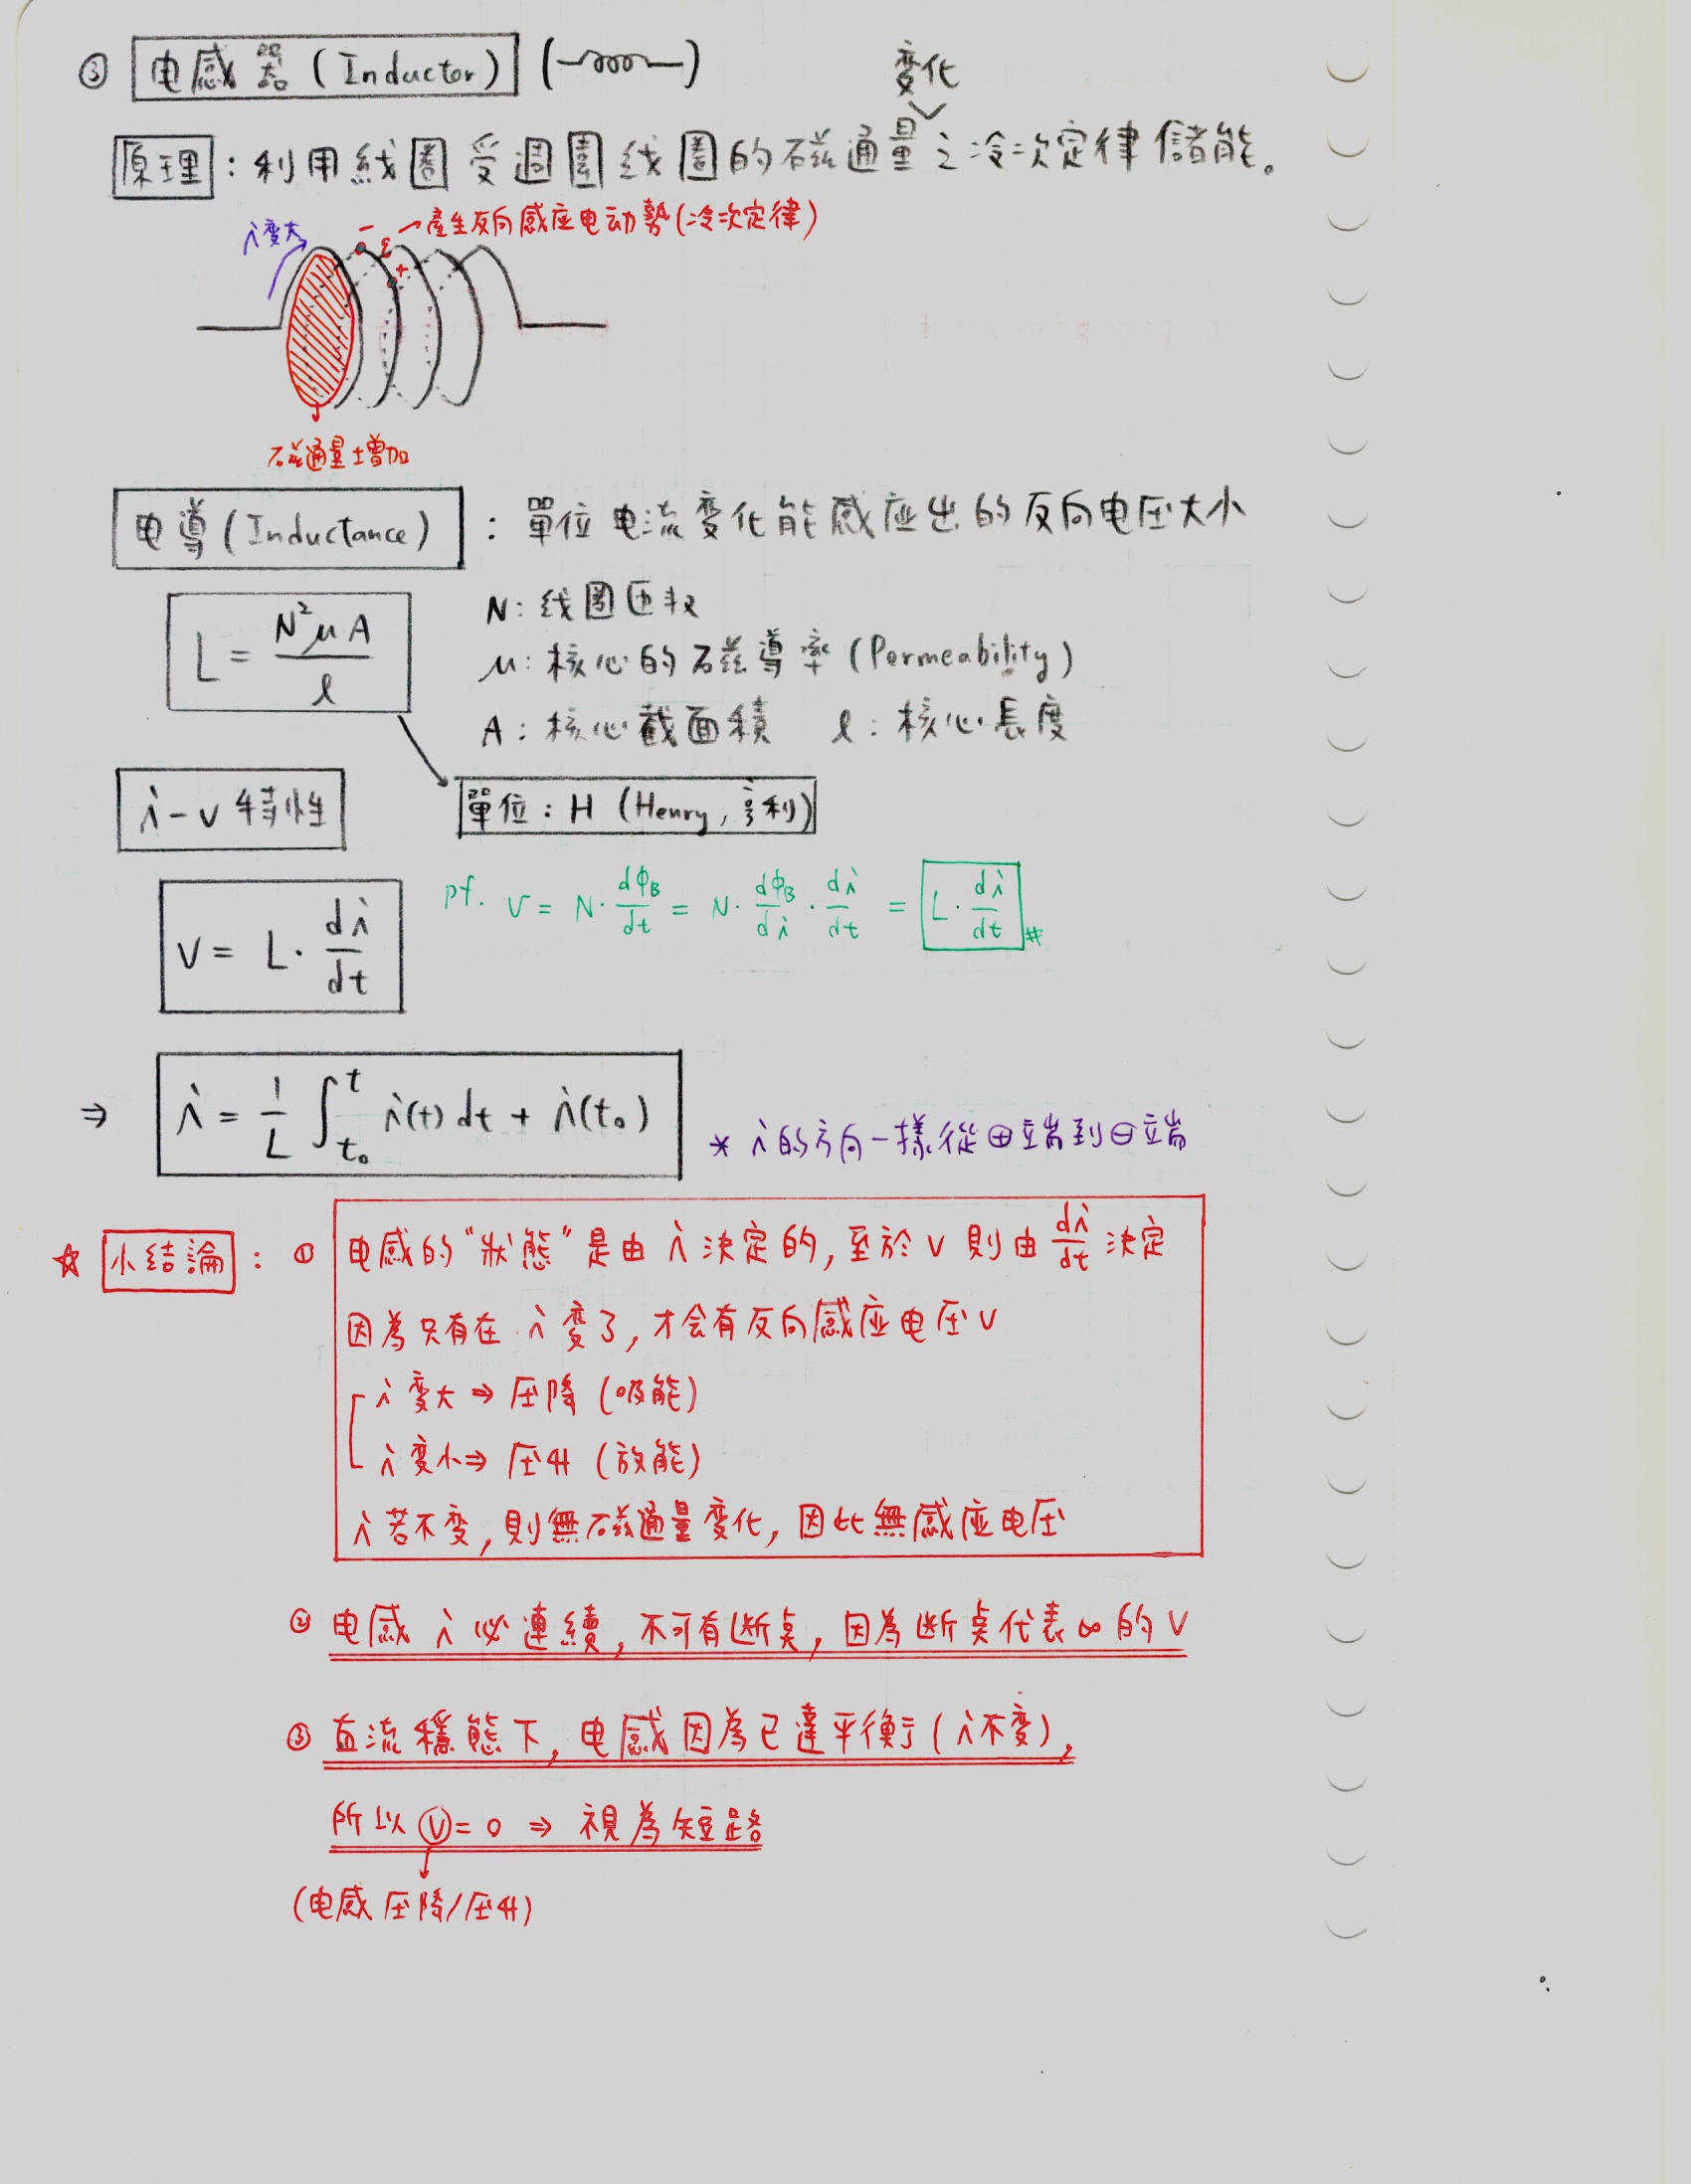 ③ 电感器 (Inductor) ( )
变化
原理 : 利用線圈受週圍线圈的磁通量之冷次定律儲能。
i变大
- ε + → 產生反向感应电动勢(冷次定律)
磁通量增加
电導 (Inductance) : 單位电流变化能感应出的反向电压大小
L = N²μA / ℓ
N: 线圈匝数
μ: 核心的磁導率 (Permeability)
A: 核心截面積 ℓ: 核心長度
i - v 特性
單位 : H (Henry, 亨利)
v = L · di/dt
pf. v = N · dΦB/dt = N · dΦB/di · di/dt = L · di/dt #
⇒ i = 1/L ∫_{t₀}^{t} i(t) dt + i(t₀)
* i的方向一樣從⊕端到⊖端
☆ 小結論 : ① 电感的"狀態"是由 i 決定的, 至於 v 則由 di/dt 決定
因為只有在 i 变了, 才会有反向感应电压 v
i 变大 ⇒ 压降 (吸能)
i 变小 ⇒ 压升 (放能)
i 若不变, 則無磁通量变化, 因此無感应电压
② 电感 i 必連續, 不可有断點, 因為断點代表 ∞ 的 v
③ 直流穩態下, 电感因為已達平衡了 (i不变),
所以 v = 0 ⇒ 視為短路
(电感压降/压升)